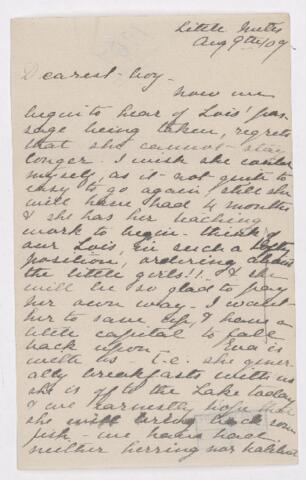 Little Metis
Aug 9th/09.
Dearest boy -
Now we
begin to hear of Lois' pas-
sage being taken, regrets
that she cannot stay
longer. I wish she could
myself, as it - not quite so
easy to go again, still she
will have had 4 months
& she has her teaching
work to begin - think of
our Lois, in such a lofty
position, ordering about
the little girls!! & she
will be so glad to pay
her own way - I want
her to save up, & have a
little capital to fall
back upon. Eva is
with us i.e. she gener-
ally breakfasts with us
she is off to the Lake today
& we earnestly hope that
she will bring back some
fish - we have had
neither herring nor halibut